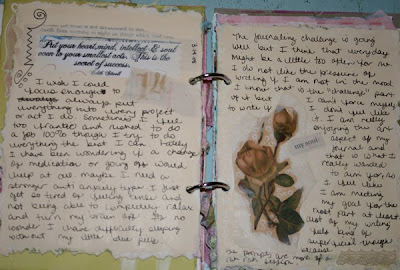 Put your heart, mind, intellect & soul
even to your smallest acts. This is
the secret of success.
I wish I could
focus enough to
always put
everything into every project
or act I do. Sometimes I feel
too frantic and rushed to do
a job 100% though I try to do
everything the best I can. Lately
I have been wondering if a change
in medication or going off would
help at all. Maybe I need a
stronger anti anxiety type. I just
get so tired of feeling tense and
not being able to completely relax
and turn my brain off. It's no
wonder I have difficulty sleeping
without my little blue pills
The journaling challenge is going
well but I think that everyday
might be a little too often for me
I do not like the pressure of
writing if I am not in the mood
I know that is the "challenge" part
of it but I can't force myself
to write if I don't feel
like it. I am really
enjoying the art
aspect of my
journal and
that is what I
really wanted
to aim for, so
I feel like
I am meeting
my goal for the
most part at least
most of my writing
feels kind of
superficial though
because
the prompts are more of a
my soul